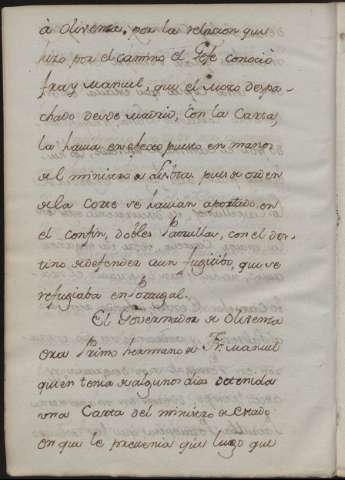 à Olivenza, por la relacion que
hizo por el camino el Gefe conociò
fray Manuel, que el Mozo despa-
chado desde Madrid, con la Carta,
la havia en efecto puesto en manos
del ministro de Lisboa, pues de orden
de la Corte se havian apostado en
el confin, dobles Patrullas, con el des-
tino de defender a un fugitibo, que se
refugiaba en Portugal.
El Governador de Olivenza
era Primo hermano de Fr. Manuel
quien tenia de algunos dias detenida
una Carta del ministro de Estado
en que le prevenia que luego que